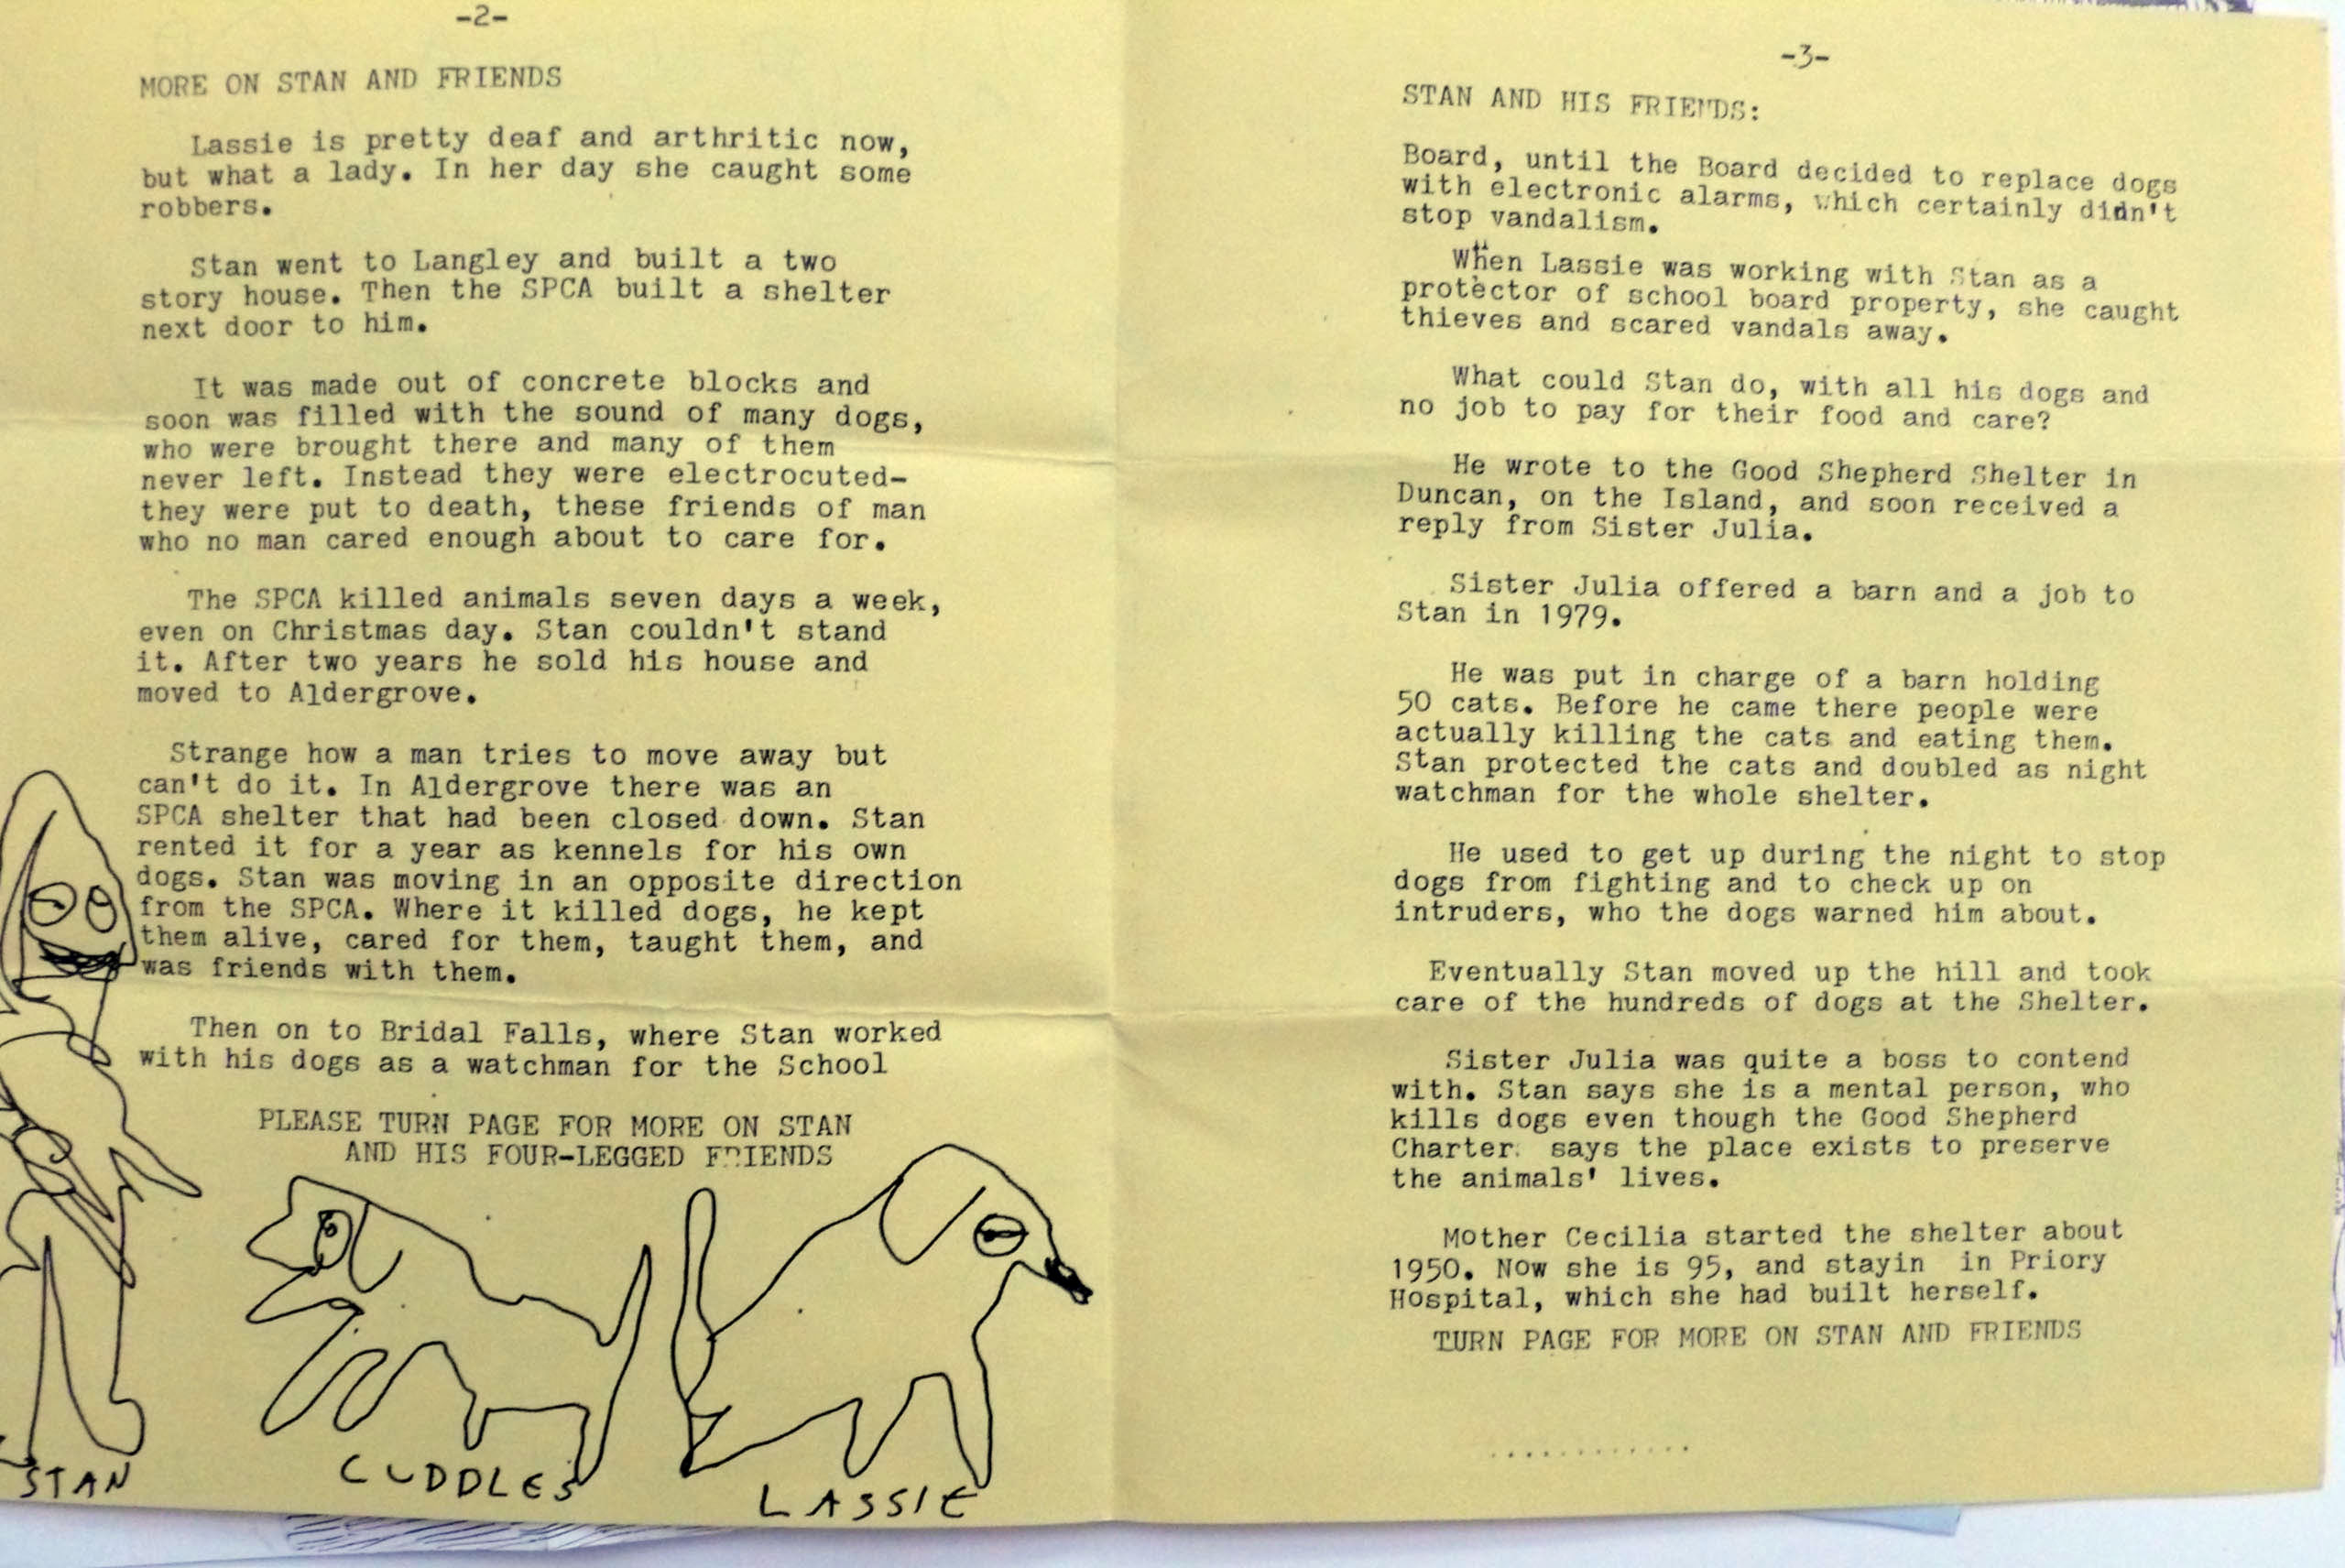 -2-
MORE ON STAN AND FRIENDS
Lassie is pretty deaf and arthritic now,
but what a lady. In her day she caught some
robbers.
Stan went to Langley and built a two
story house. Then the SPCA built a shelter
next door to him.
It was made out of concrete blocks and
soon was filled with the sound of many dogs,
who were brought there and many of them
never left. Instead they were electrocuted-
they were put to death, these friends of man
who no man cared enough about to care for.
The SPCA killed animals seven days a week,
even on Christmas day. Stan couldn't stand
it. After two years he sold his house and
moved to Aldergrove.
Strange how a man tries to move away but
can't do it. In Aldergrove there was an
SPCA shelter that had been closed down. Stan
rented it for a year as kennels for his own
dogs. Stan was moving in an opposite direction
from the SPCA. Where it killed dogs, he kept
them alive, cared for them, taught them, and
was friends with them.
Then on to Bridal Falls, where Stan worked
with his dogs as a watchman for the School
PLEASE TURN PAGE FOR MORE ON STAN
AND HIS FOUR-LEGGED FRIENDS
STAN
CUDDLES
LASSIE
-3-
STAN AND HIS FRIENDS:
Board, until the Board decided to replace dogs
with electronic alarms, which certainly didn't
stop vandalism.
When Lassie was working with Stan as a
protector of school board property, she caught
thieves and scared vandals away.
What could Stan do, with all his dogs and
no job to pay for their food and care?
He wrote to the Good Shepherd Shelter in
Duncan, on the Island, and soon received a
reply from Sister Julia.
Sister Julia offered a barn and a job to
Stan in 1979.
He was put in charge of a barn holding
50 cats. Before he came there people were
actually killing the cats and eating them.
Stan protected the cats and doubled as night
watchman for the whole shelter.
He used to get up during the night to stop
dogs from fighting and to check up on
intruders, who the dogs warned him about.
Eventually Stan moved up the hill and took
care of the hundreds of dogs at the Shelter.
Sister Julia was quite a boss to contend
with. Stan says she is a mental person, who
kills dogs even though the Good Shepherd
Charter. says the place exists to preserve
the animals' lives.
Mother Cecilia started the shelter about
1950. Now she is 95, and stayin in Priory
Hospital, which she had built herself.
TURN PAGE FOR MORE ON STAN AND FRIENDS
............